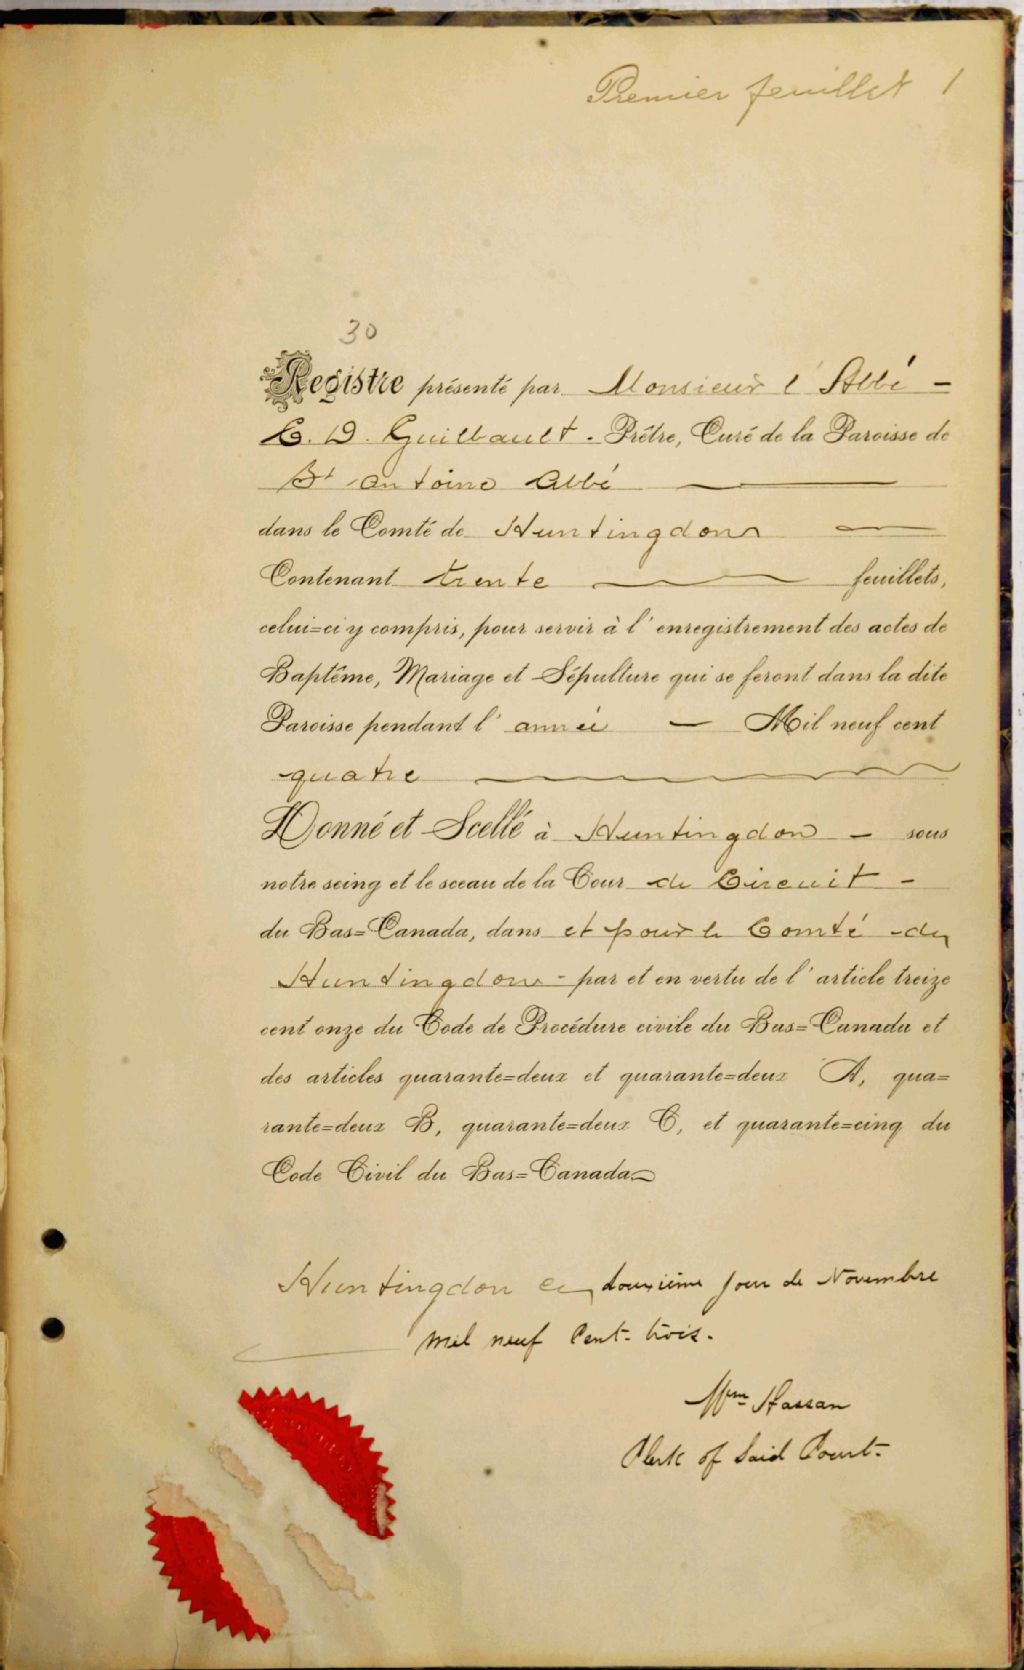 Premier feuillet 1
30
Registre présenté par Monsieur l'Abbé -
C. D. Guilbault - Prêtre, Curé de la Paroisse de
St Antoine Abbé
dans le Comté de Huntingdon
Contenant trente feuillets,
celui=ci y compris, pour servir à l'enregistrement des actes de
Baptême, Mariage et Sépulture qui se feront dans la dite
Paroisse pendant l'année — Mil neuf cent
quatre
Donné et Scellé à Huntingdon - sous
notre seing et le sceau de la Cour de Circuit -
du Bas=Canada, dans et pour le Comté de
Huntingdon - par et en vertu de l'article treize
cent onze du Code de Procédure civile du Bas=Canada et
des articles quarante=deux et quarante=deux A, qua=
rante=deux B, quarante=deux C, et quarante=cinq du
Code Civil du Bas=Canada
Huntingdon ce douxième jour de Novembre
mil neuf Cent-trois.
Wm Hassan
Clerk of Said Court.